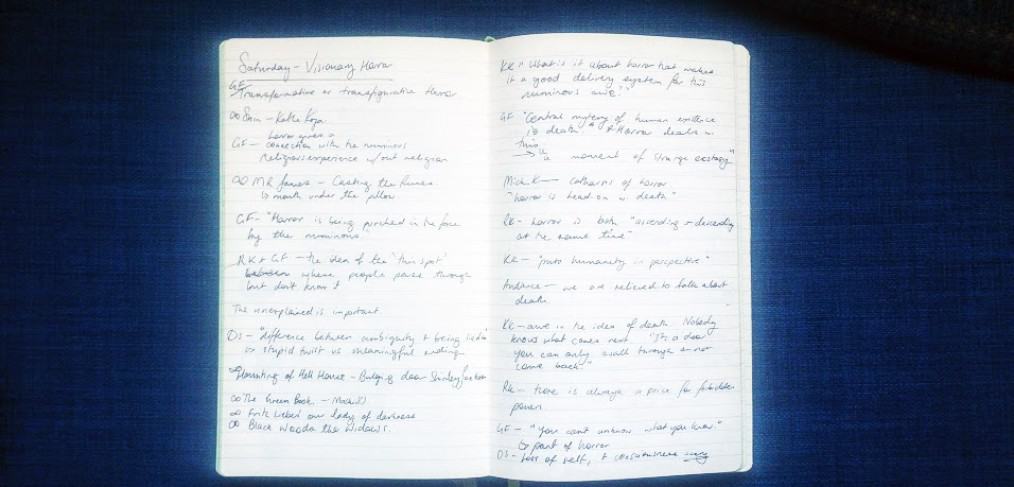 Saturday - Visionary Horror
GF
Transformative or transfigurative Horror
∞ Skin - Kathe Koja.
horror gives a
GF - connection with the numinous
Religious experience w/out religion
∞ MR James - Casting the Runes.
is mouth under the pillow
GF - "Horror is being punched in the face
by the numinous."
RK + GF - the idea of the 'thin spot'
where people pass through
but don't know it
The unexplained is important.
DS - "difference between ambiguity & being lied to"
or stupid twist vs meaningful ending
∞ Haunting of Hell House - Bulging door Shirley Jackson
∞ The Green Book. -
∞ Fritz Leiber our lady of darkness
∞ Black Woods the Willows.
KK "What is it about horror that makes
it a good delivery system for this
numinous awe?"
GF "Central mystery of human existence
is death" & Horror deals w.
this
→ "a moment of strange ecstasy"
Mich K - catharsis of horror
"horror is head-on w. death"
RK - horror is both "ascending & descending
at the same time"
KK - "puts humanity in perspective"
Audience - we are relieved to talk about
death.
KK - awe in the idea of death. Nobody
knows what comes next "It's a door
you can only walk through & not
come back."
RK - there is always a price for forbidden
power.
GF - "You can't unknow what you know."
part of horror
DS - loss of self, & consciousness